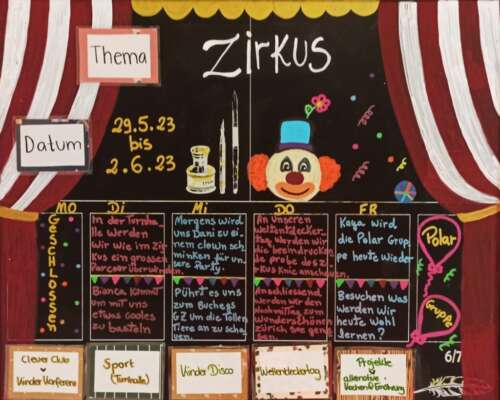 Thema
Zirkus
Datum
29.5.23
bis
2.6.23
MO
DI
Mi
DO
FR
GESCHLOSSEN
In der Turnha-
lle werden
wir wie im Zir
kus ein grossen
Parcour überwinden.
Morgens wird
uns Dani zu ei-
nem clown sch
minken für un-
sere Party.
An unseren
Weltentdecker
tag werden wir
die beeindrucken
de probe des Zi
rkus Knie anschauen.
Kaya wird
die Polar Grup
pe heute Wieder
Polar
Bianca kommt
um mit uns
etwas cooles
zu basteln
Führt es uns
zum Buchegg
GZ um die Tollen
Tiere an zu scha
uen.
Anschliessend
werden wir den
Nachmittag zum
wunderschönen
Zürich see genie
ssen.
Besuchen was
werden wir
heute Wohl
lernen?
Gruppe
6/7
Clever Club
Kinder Konferenz
Sport
(Turnhalle)
Kinder Disco
Weltentdeckertag!
Projekte
alternative
Kochen & Ernährung